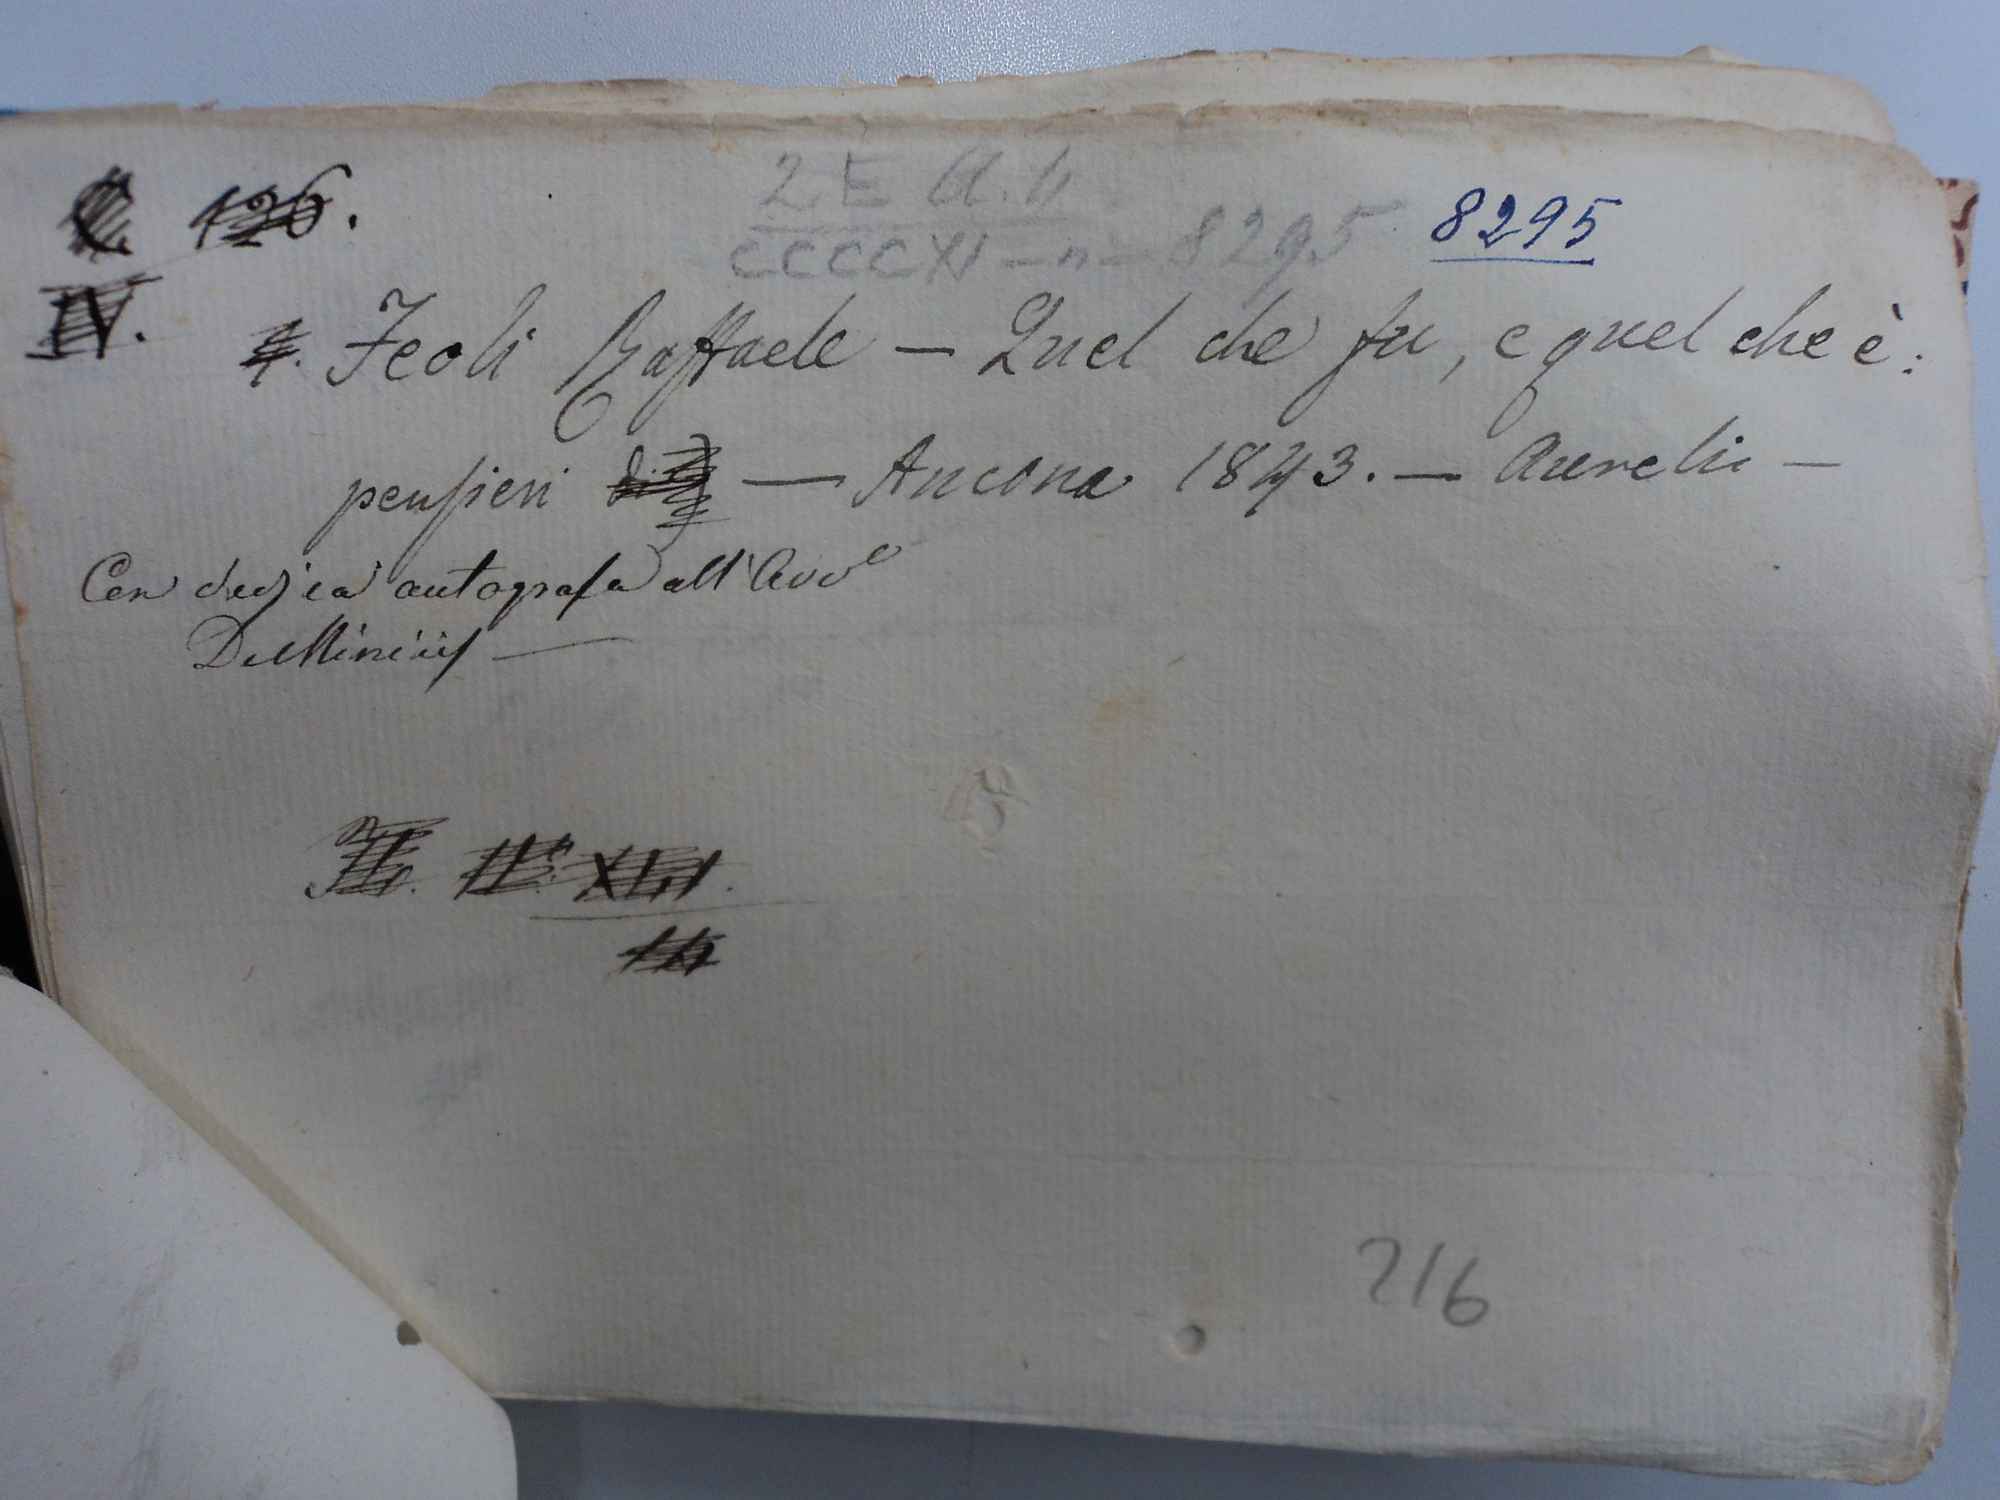 C 126.
2 E a. b
CCCCXI - n - 8295
8295
IV.
4. Feoli Raffaele — Quel che fu, e quel che è:
pensieri — Ancona 1843. — Aurelii —
Con dedica autografa all'Avv.e
De Minicis —
XLI.
216